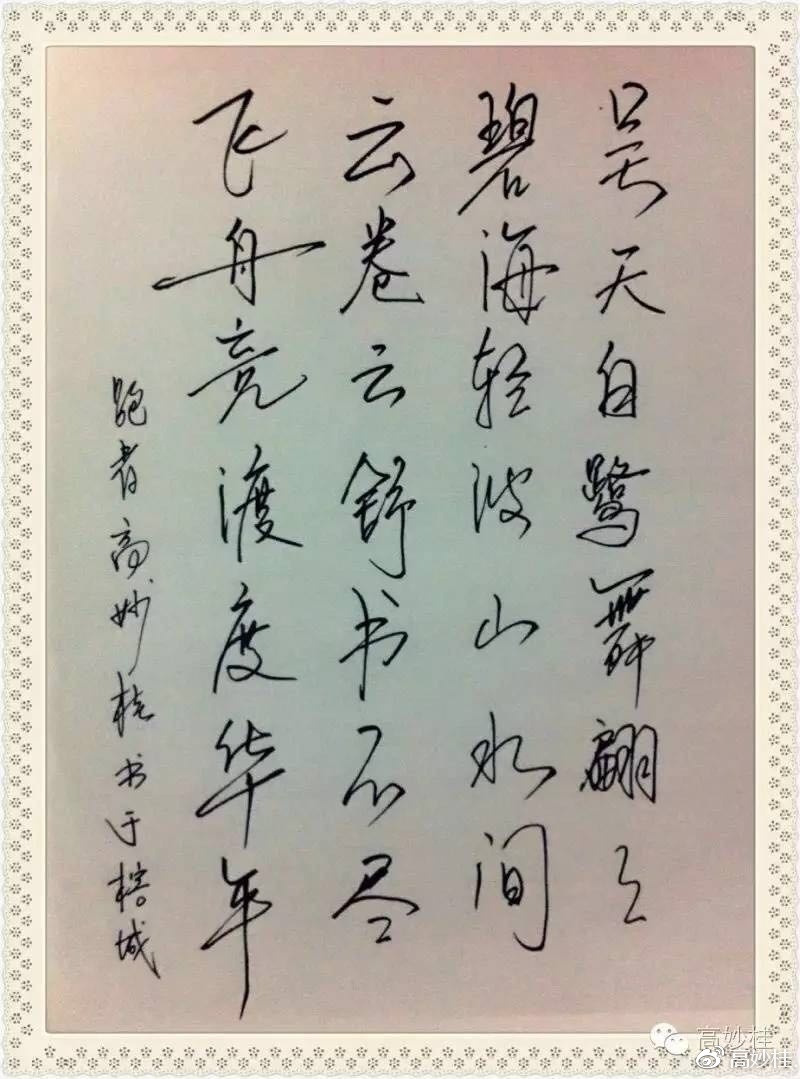 昊天白鹭舞翩々
碧海轻波山水间
云卷云舒书不尽
飞舟竞渡度华年
跑者高妙桂书于榕城
高妙桂
高妙桂